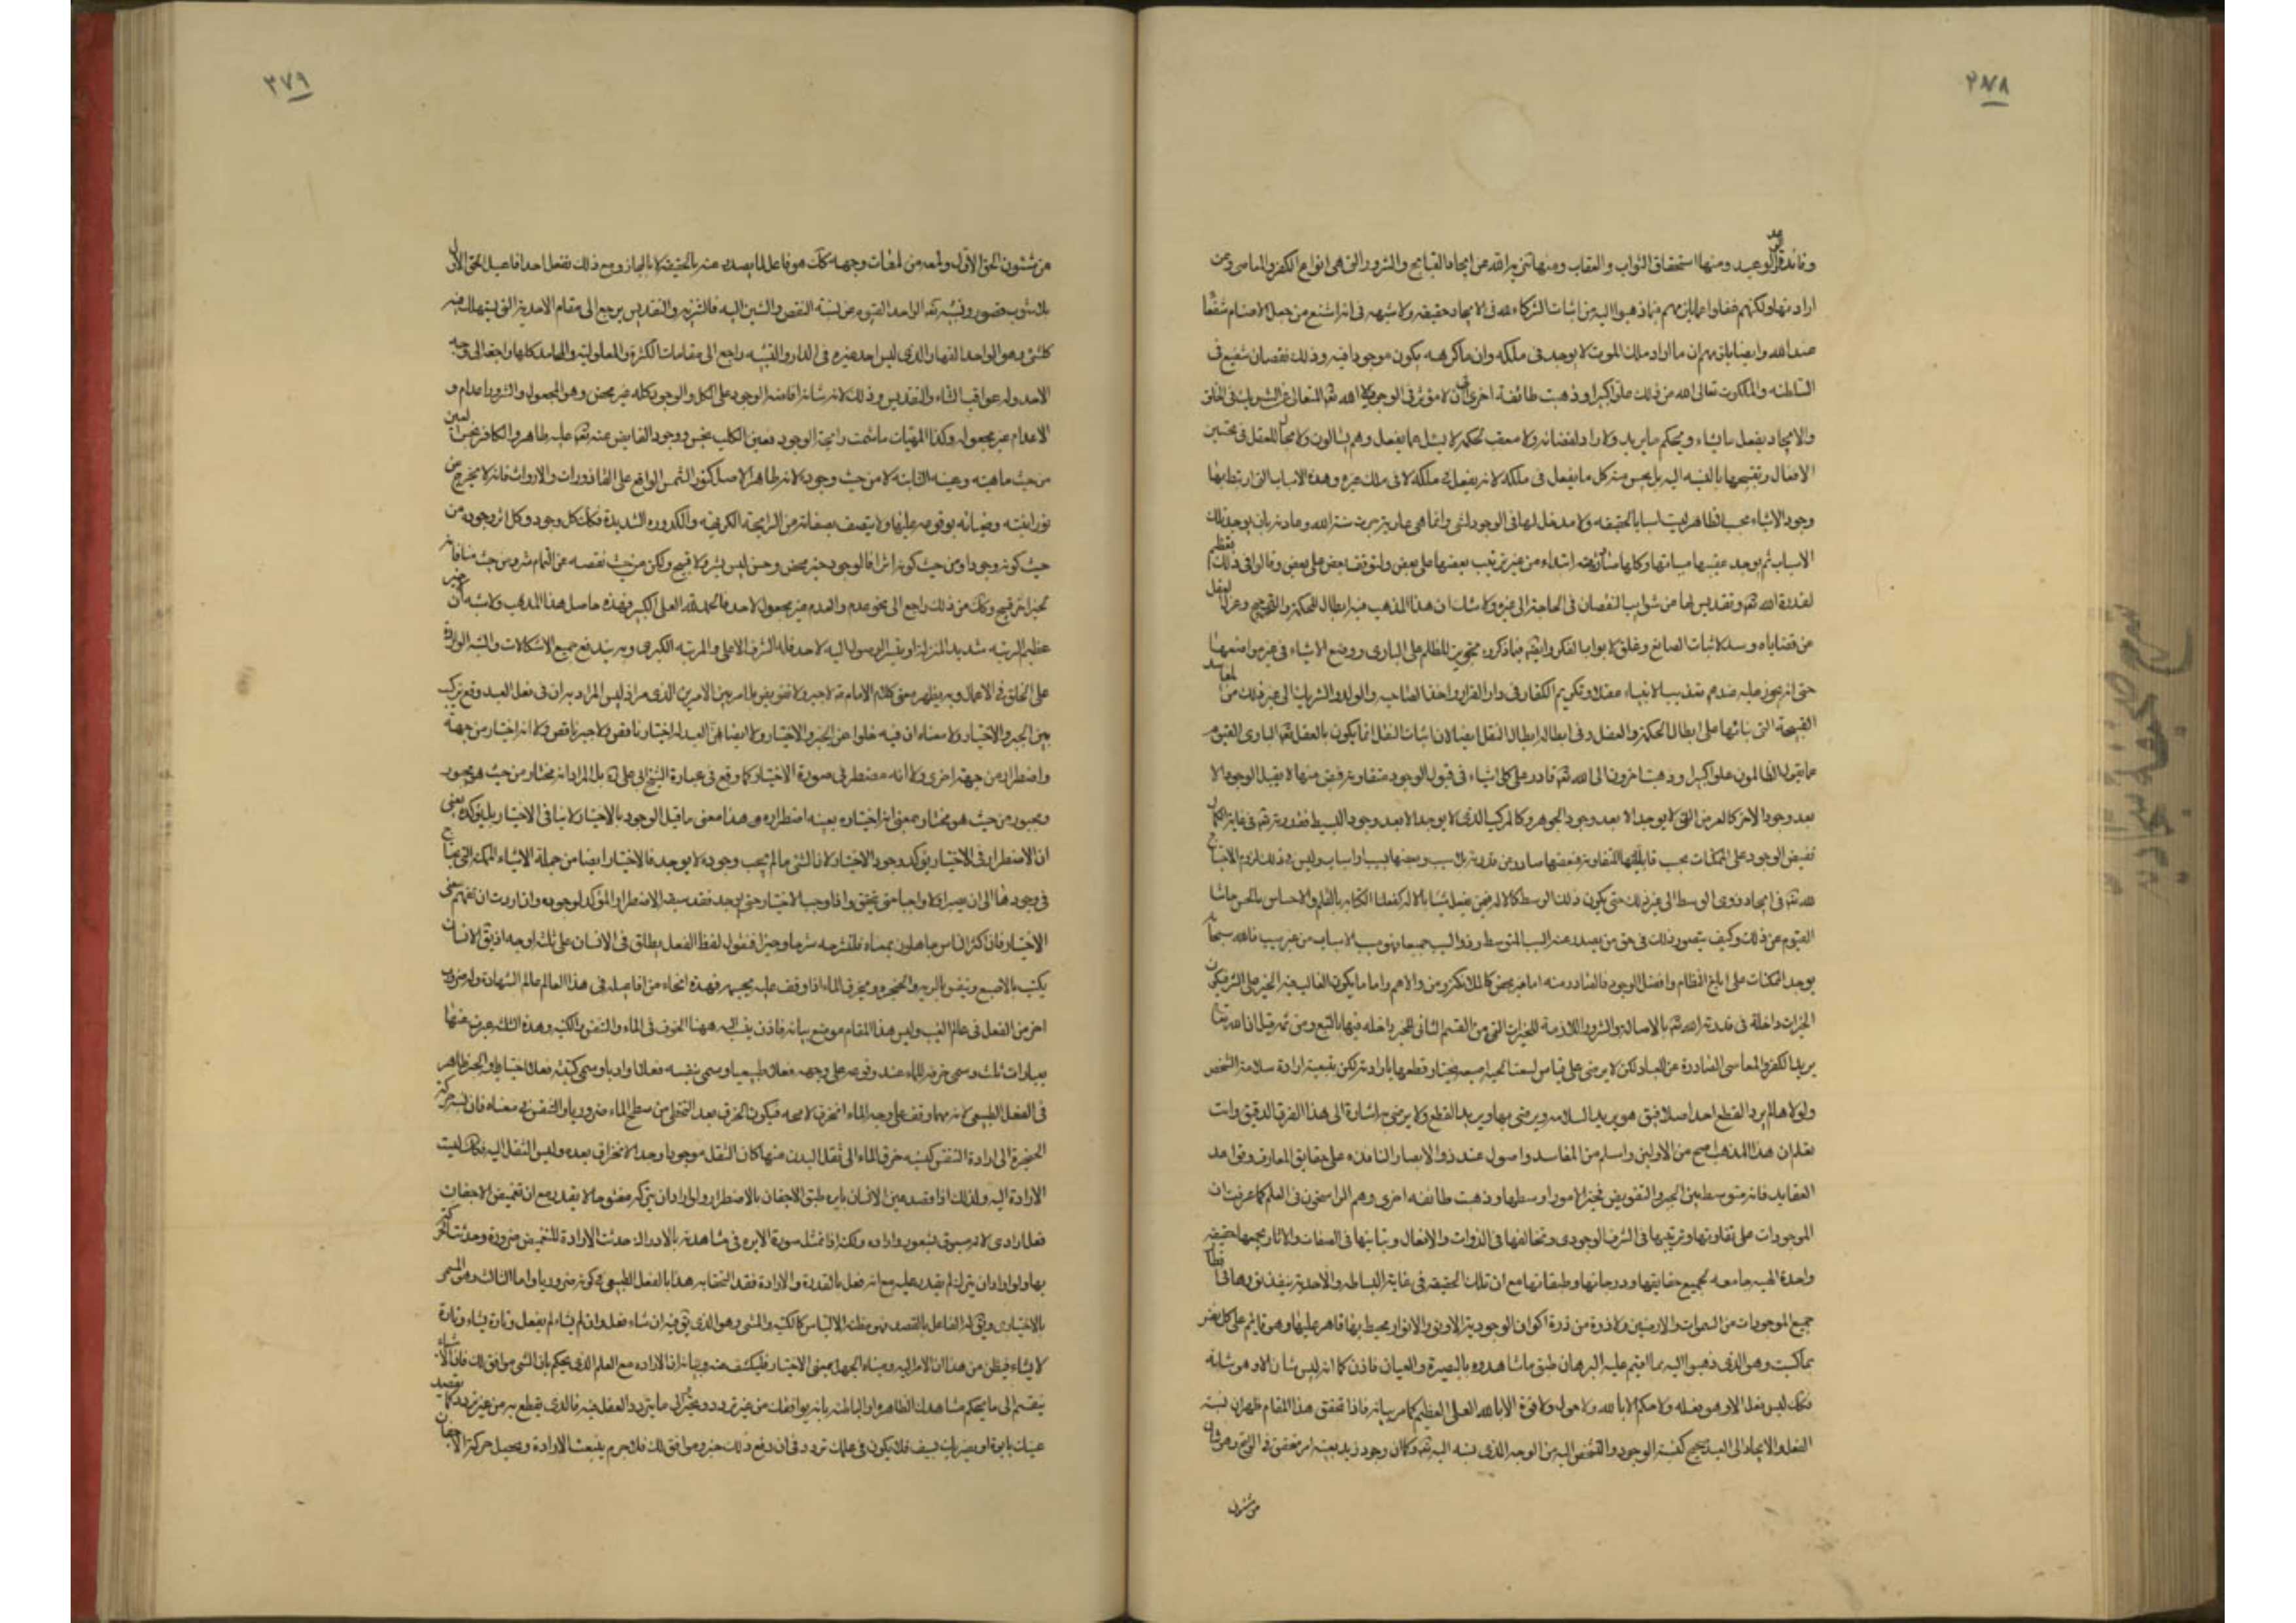 ٣٧٨
وفائدة الوعد والوعيد ومنها استحقاق الثواب والعقاب ومنها تنزيه الله عن ايجاد القبايح والشرور التى هى انواع الكفر والمعاصى وعن
ارادتها ولكنهم غفلوا عما يلزمهم فيما ذهبوا اليه من اثبات الشركاء لله فى الايجاد حقيقة ولا شبهة فى انه اشنع من جعل الاصنام شفعاء
عند الله وايضا يلزمهم ان ما اراد ملك الملوك لا يوجد فى ملكه وان ما كرهه يكون موجودا فيه وذلك نقصان شنيع فى
السلطنة والملكوت تعالى الله عن ذلك علوا كبيرا وذهبت طائفة اخرى الى ان لا مؤثر فى الوجود الا الله المتعالى عن الشريك فى الخلق
والايجاد يفعل ما يشاء ويحكم ما يريد ولا راد لقضائه ولا معقب لحكمه لا يسئل عما يفعل وهم يسئلون ولا مجال للعقل فى تحسين
الافعال وتقبيحها بالنسبة اليه بل يحسن منه كل ما يفعل فى ملكه لانه يفعل فى ملكه لا فى ملك غيره وهذه الاسباب التى ارتبط بها
وجود الاشياء بحسب الظاهر ليست اسبابا بالحقيقة ولا مدخل لها فى الوجود لشى وانما هى عارية جرت سنة الله وعادته بان يوجد تلك
الاسباب ثم يوجد عقيبها مسبباتها وكلها صادرة عنه ابتداء من غير ترتيب بعضها على بعض ولتوقف بعض على بعض وقالوا فى ذلك تعظيم
لقدرة الله تعالى وتقديس لها من شوايب النقصان فى الحاجة الى غيره ولا شك ان هذا المذهب فيه ابطال للحكمة والترجيح وعزل العقل
عن قضاياه وسد لاثبات الصانع وغلق لابواب الفكر وايضا فيما ذكروه تجويز للظلم على البارى ووضع الاشياء فى غير مواضعها
حتى انه يجوز عليه عندهم تعذيب الانبياء عقلا وتكريم الكفار فى دار القرار واخذ الصاحب والولد والشريك الى غير ذلك من المفاسد
القبيحة التى بناؤها على ابطال الحكمة والعقل وفى ابطاله ابطال النقل ايضا لان اثبات النقل انما يكون بالعقل تعالى البارى القيوم
عما يقول الظالمون علوا كبيرا وذهب اخرون الى ان الله تعالى قادر على كل شى
بعد وجود الاخر كالعرض الذى لا يوجد الا بعد وجود الجوهر وكالمركب الذى لا يوجد الا بعد وجود البسيط فقدرته تعالى فى غاية الكمال
تفيض الوجود على الممكنات بحسب قابليتها المتفاوتة فبعضها صادر عن قدرته بلا سبب وبعضها بسبب او اسباب وليس فى ذلك لزوم الاحتياج
يوجد الممكنات على ابلغ النظام وافضل الوجود فالصادر منه اما خير محض كالملائكة ومن والاهم واما ما يكون الغالب فيه الخير على الشر فيكون
الخيرات داخلة فى قدرة الله تعالى بالاصالة والشرور اللازمة للخيرات التى من القسم الثانى للخير داخلة فيها بالتبع ومن ثم قيل ان الله تعالى
يريد الكفر والمعاصى الصادرة عن العباد لكن لا يرضى على قياس من لسعت الحية اصبعه فيختار قطعها بارادته لكن بتبعية ارادة سلامة الشخص
ولولاها لم يرد القطع احد اصلا فيق هو يريد السلامة ويرضى بها ويريد القطع ولا يرضى به اشارة الى هذا الفرق الدقيق وانت
تعلم ان هذا المذهب اصح من الاولين واسلم من المفاسد واصوب عند ذوى الابصار النافذة على حقايق المعارف وقواعد
العقايد فانه متوسط بين الجبر والتفويض وخير الامور اوسطها وذهبت طائفة اخرى وهم الراسخون فى العلم كما عرفت ان
الموجودات على تفاوتها وترتبها فى الشرف الوجودى وتخالفها فى الذوات والافعال وتباينها فى الصفات والاثار يجمعها حقيقة
واحدة الهية جامعة لجميع حقايقها ودرجاتها وطبقاتها مع ان تلك الحقيقة فى غاية البساطة والاحدية ينفذ نورها فى اقطار
جميع الموجودات من السموات والارضين ولا ذرة من ذرة اكوان الوجودية الا ونور الانوار محيط بها قاهر عليها وهو قائم على كل نفس
بما كسبت وهو الذى ذهبوا اليه مما اقيم عليه البرهان طبق ما شاهدوه بالبصيرة والعيان فاذن كما انه ليس شان الا وهو شانه
فكك ليس فعل الا وهو فعله ولا حكم الا لله ولا حول ولا قوة الا بالله العلى العظيم كما مر بيانه فاذا تحقق هذا المقام ظهر ان نسبة
الفعل والايجاد الى العبد صحيح كنسبة الوجود والتشخص اليه من الوجه الذى نسبه اليه تعالى وكما ان وجود زيد بعينه امر متحقق فى الواقع وهو شان
من شئون
٣٧٩
من شئون الحق الاول ولمعة من لمعات وجهه كك هو فاعل لما يصدر عنه بالحقيقة لا بالمجاز ومع ذلك ففعله احد افاعيل الحق الاول
بلا شوب قصور وتشبيه تعالى الواحد القيوم عن نسبة النقص والشين اليه فالتنزيه والتقديس يرجع الى مقام الاحدية التى يستهلك فيه
كل شى وهو الواحد القهار الذى ليس احد غيره فى الدار والتشبيه راجع الى مقامات الكثرة والمعلولية والمحامد كلها راجعة الى وجه
الاحد وله عواقب الثناء والتقديس وذلك لان شانه افاضة الوجود على الكل والوجود كله خير محض وهو المجعول والشرور اعدام و
الاعدام غير مجعولة وكذا المهيات ما شمت رايحة الوجود فعين الكلب نجس ووجود الفايض عنه تعالى عليه طاهر والكافر نجس العين
من حيث ماهيته وعينه الثابتة لا من حيث وجوده لانه طاهر الاصل كنور الشمس الواقع على القاذورات والارواث فانه لا يخرج من
نورانيته وضيائه بوقوعه عليها ولا يتصف بصفاتها من الرايحة الكريهة والكدورة الشديدة فكك كل وجود وكل اثر وجود من
حيث كونه وجودا ومن حيث كونه اثرا فالوجود خير محض وحسن ليس بشر ولا قبيح ولكن من حيث نقصه عن التمام شر ومن حيث منافاته
لخير اخر قبيح وكل من ذلك راجع الى نحو عدم والعدم غير مجعول لاحد فالحمد لله العلى الكبير فهذه حاصل هذا المذهب ولا شبهة فى ان
عظيم الرتبة شديد المنزلة لو تيسر الوصول اليه لاحد فله الشرف الاعلى والمرتبة الكبرى وبه يندفع جميع الاشكالات والشبه الواردة
على الخلق فى الاعمال وبه يظهر معنى كلام الامام لا جبر ولا تفويض بل امر بين الامرين الذى مر اذ ليس المراد به ان فى فعل العبد وقع تركيب
بين الجبر والاختيار ولا معناه ان فيه خلوا عن الجبر والاختيار ولا ايضا ان العبد له اختيار ناقص ولا جبر ناقص ولا انه اختيار من جهة
واضطرار من جهة اخرى ولا انه مضطر فى صورة الاختيار كما وقع فى عبارة الشيخ ابى على بل المراد انه مختار من حيث هو مجبور
ومجبور من حيث هو مختار بمعنى ان اختياره بعينه اضطراره وهذا معنى ما قيل الوجوب بالاختيار لا ينافى الاختيار بل يؤكده يعنى
ان الاضطرار فى الاختيار يؤكد وجود الاختيار لان الشى ما لم يجب وجوده لا يوجد فالاختيار ايضا من جملة الاشياء الممكنة التى يحتاج
فى وجودها الى ان يصير اولا واجبا حتى يتحقق واذا وجب الاختيار حتى يوجد فقد سبقه الاضطرار المؤكد لوجوده وان اردت ان تفهم معنى
الاختيار فان اكثر الناس جاهلون بمعناه فلنشرحه شرحا وجيزا فنقول لفظ الفعل يطلق فى الانسان على ثلث اوجه اذ يق الانسان
يكتب بالاصبع ويتنفس بالرية والحنجرة ويخرق الماء اذا وقف عليه بجسمه فهذه انحاء من افاعيله فى هذا العالم عالم الشهادة وله ضروب
اخر من الفعل فى عالم الغيب وليس هذا المقام موضع بيانه فاذن ينسب اليه ههنا الخرق فى الماء والتنفس والكتبة وهذه الثلث عبرت عنها
بعبارات ثلث وسمى خرقه للماء عند وقوعه على وجهه فعلا طبيعيا وسمى تنفسه فعلا اراديا وسمى كتبته فعلا اختياريا والجبر ظاهر
فى الفعل الطبيعى لانه مهما وقف على وجه الماء انخرق لا محة فيكون الخرق بعد التخطى من سطح الماء ضروريا والتنفس فى معناه فان نسبة حركة
الحنجرة الى ارادة التنفس كنسبة خرق الماء الى ثقل البدن فمهما كان الثقل موجودا وجد الانخراق بعده وليس الثقل اليه فكك ليست
الارادة اليه ولذلك اذا قصد عين الانسان بابرة طبق الاجفان بالاضطرار ولو اراد ان يتركه مفتوحا لا يقدر مع ان تغميض الاجفان
فعل ارادى لانه مسبوق بشعور وارادة ولكنه اذا تمثل صورة الابرة فى مشاهدته بالادراك حدثت الارادة للتغميض ضرورة وحدثت الحركة
بها ولو اراد ان يترك لم يقدر عليه مع انه فعل بالقدرة والارادة فقد التحق هذا بالفعل الطبيعى فى كونه ضروريا واما الثالث وهو المسمى
بالاختيارى ويق له الفاعل بالقصد فهو مظنة الالتباس كالكتبة والمشى وهو الذى يق فيه ان شاء فعل وان لم يشاء لم يفعل وتارة يشاء وتارة
لا يشاء فيظن من هذا ان الامر اليه ومنشاه الجهل بمعنى الاختيار فليكشف عنه وبيانه ان الارادة مع العلم الذى يحكم بان الشى موافق لك فان الاشياء
ينقسم الى ما يحكم مشاهدتك الظاهرة او الباطنة بانه يوافقك من غير تردد وتحير والى ما يتردد العقل فيه فالذى يقطع به من غير تردد كما يقصد
عينك بابرة او بضربك بسيف فلا يكون فى علمك تردد فى ان دفع ذلك خير وموافق لك فلا جرم ينبعث الارادة ويحصل حركة الاجفان